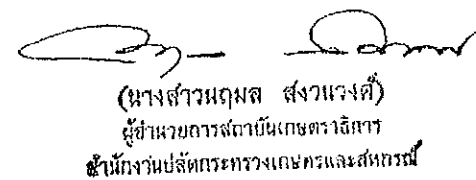 (นางสาวนฤมล สงวนวงศ์)
ผู้อำนวยการสถาบันเกษตราธิการ
สำนักงานปลัดกระทรวงเกษตรและสหกรณ์